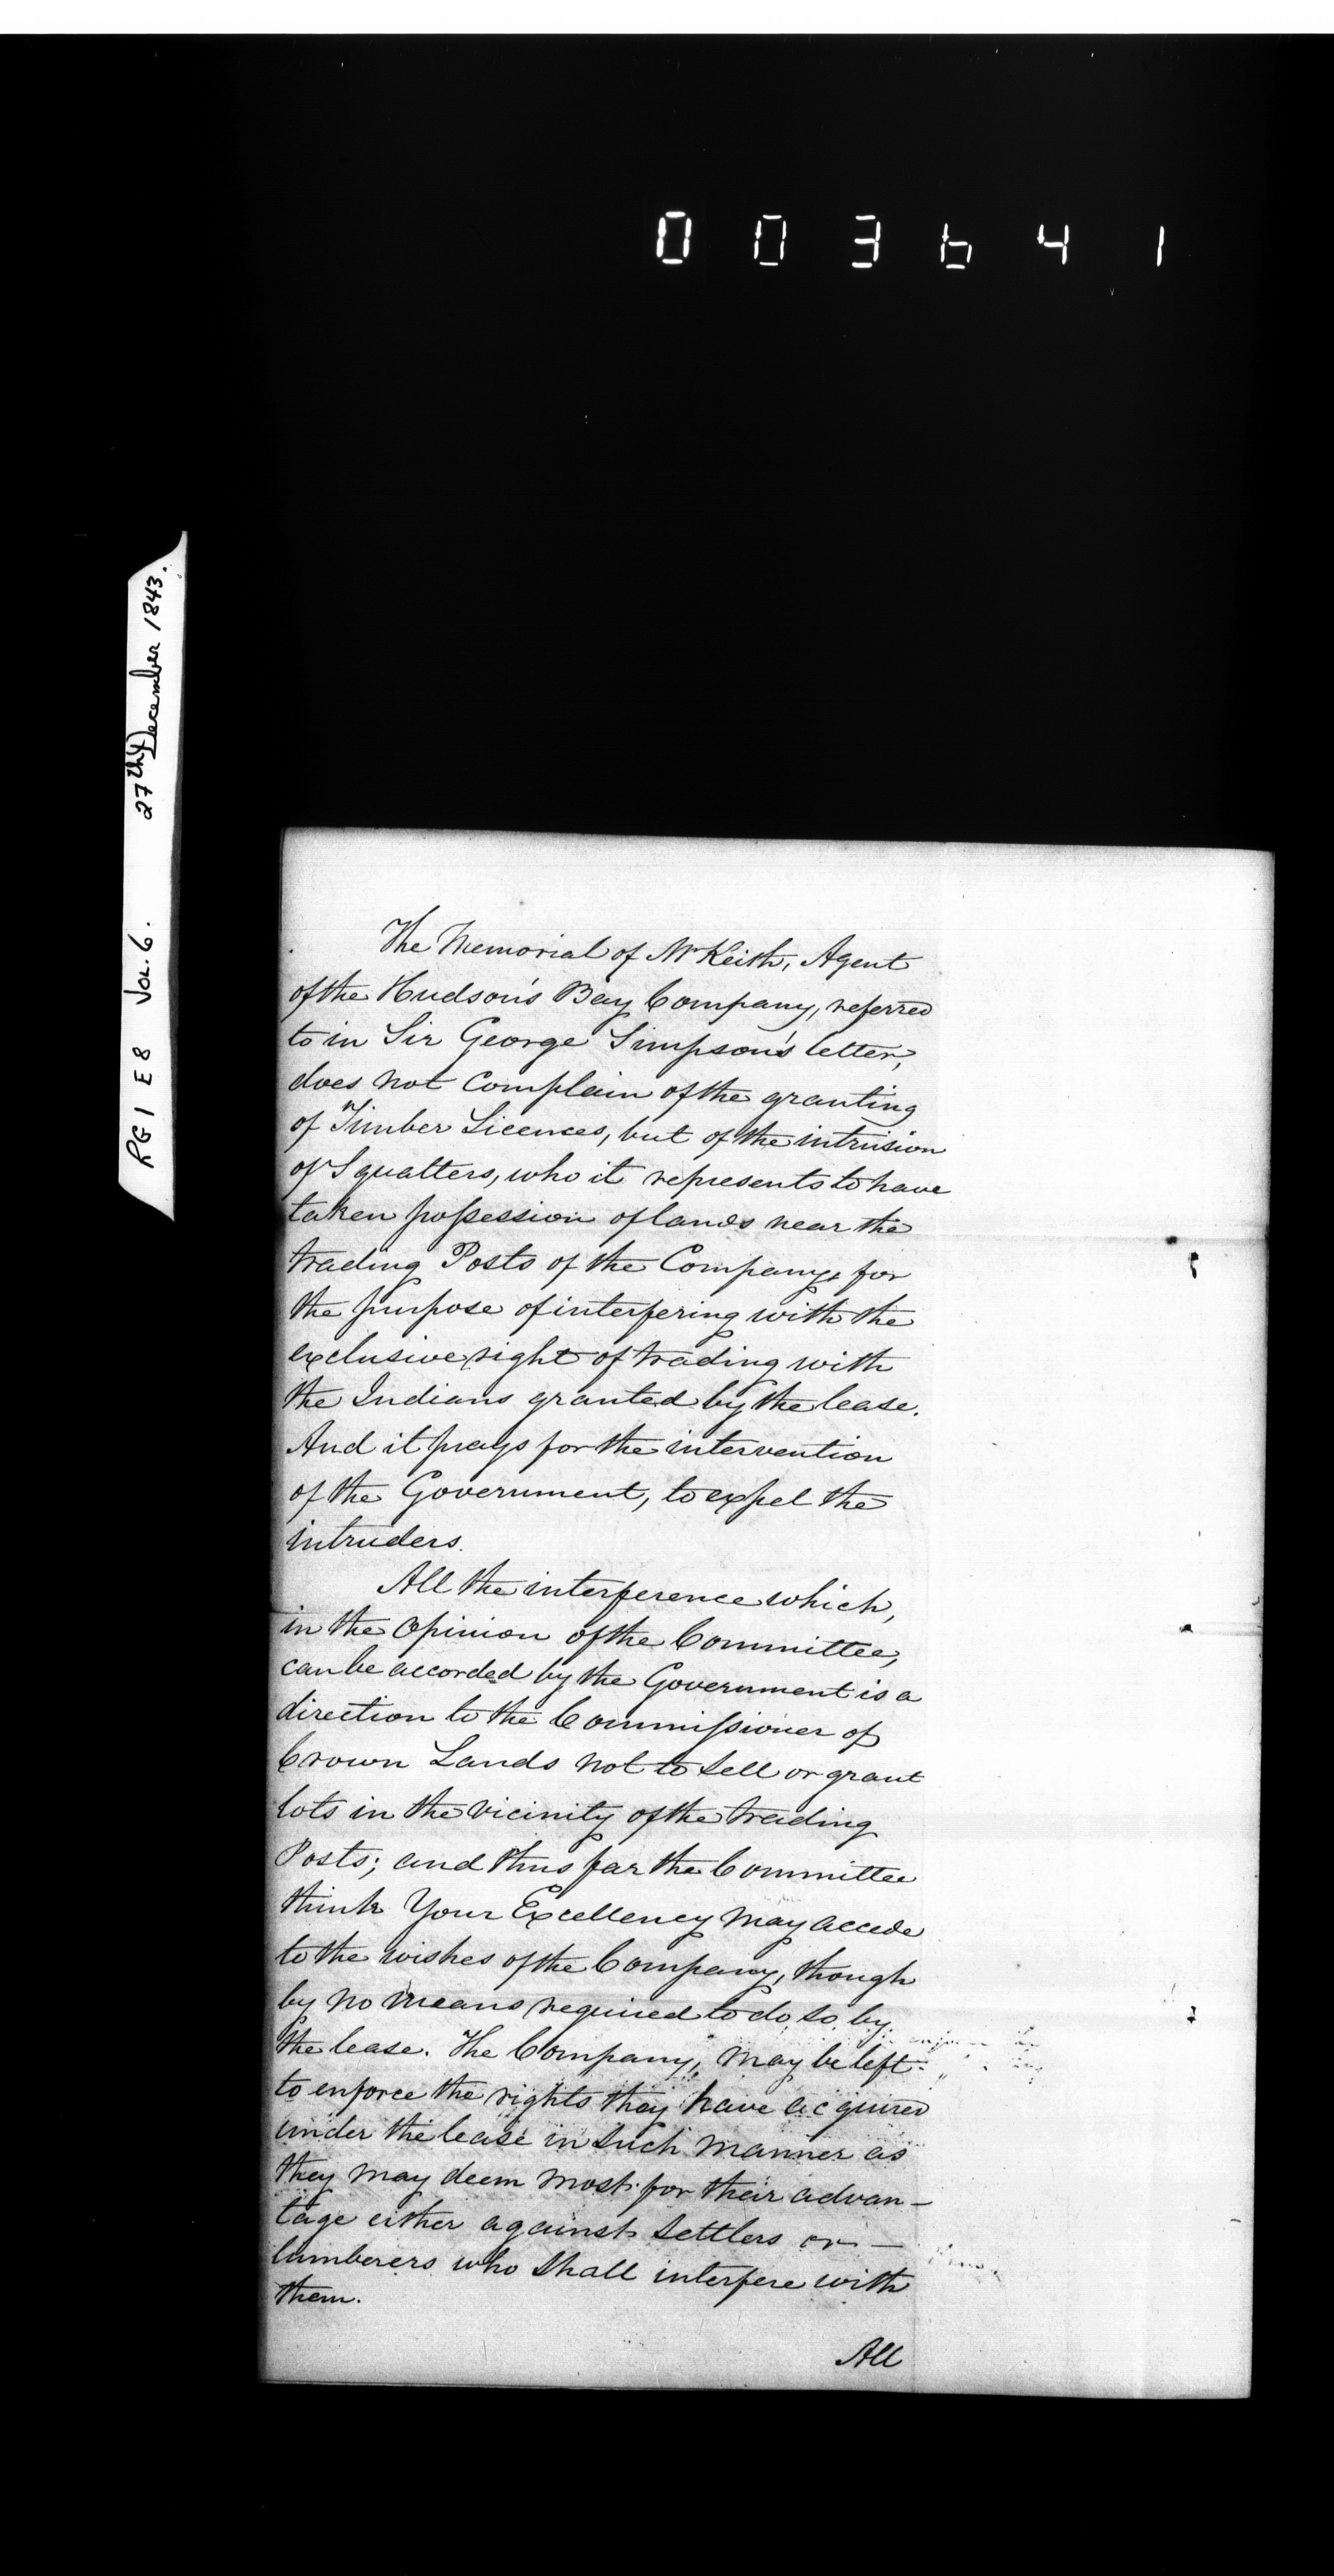 003641
RG1 E8 Vol. 6. 27th December 1843.
The Memorial of Mr Keith, Agent
of the Hudson's Bay Company, referred
to in Sir George Simpson's letter,
does not complain of the granting
of Timber Licences, but of the intrusion
of Squatters, who it represents to have
taken possession of lands near the
trading Posts of the Company, for
the purpose of interfering with the
exclusive right of trading with
the Indians granted by the lease.
And it prays for the intervention
of the Government, to expel the
intruders.
All the interference which,
in the opinion of the Committee,
can be accorded by the Government is a
direction to the Commissioner of
Crown Lands not to sell or grant
lots in the vicinity of the trading
Posts; and thus far the Committee
think Your Excellency may accede
to the wishes of the Company, though
by no means required to do so by
the lease. The Company, may be left
to enforce the rights they have acquired
under the lease in such manner as
they may deem most for their advan-
tage either against settlers or —
lumberers who shall interfere with
them.
All